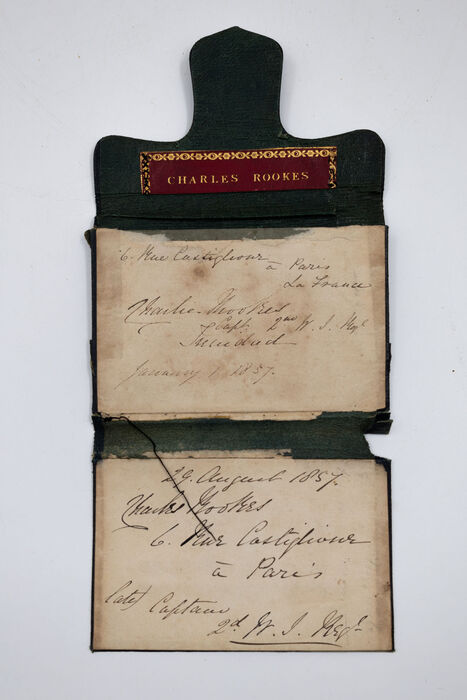 CHARLES ROOKES
6. Rue Castiglione
à Paris
La France
Charles Rookes
Capt. 2nd W. I. Regt
Trinidad
January 1 1857.
29. August 1857.
Charles Rookes
6. Rue Castiglione
à Paris
late) Captain
2d. W. I. Regt